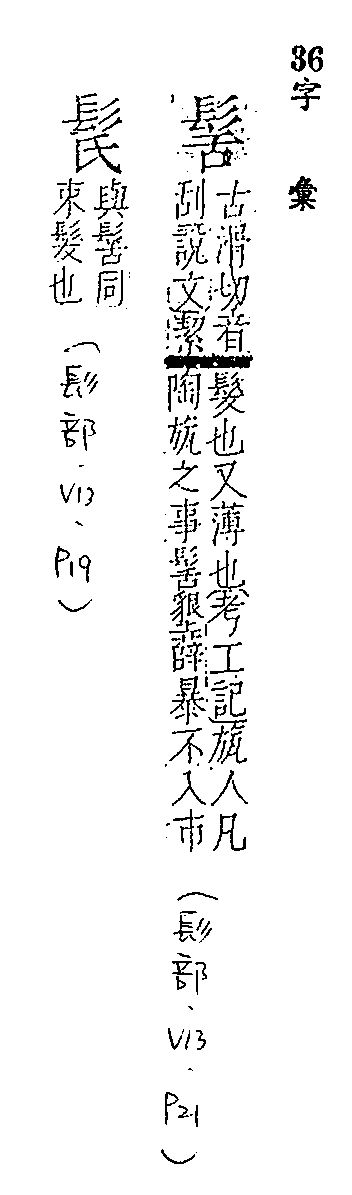 36字彙
髺
古滑切音
刮說文潔
髮也又薄也考工記瓬人凡
陶瓬之事髺墾薜暴不入市
(髟部、V13、P21)
與髺同
束髮也
(髟部、V13、P19)